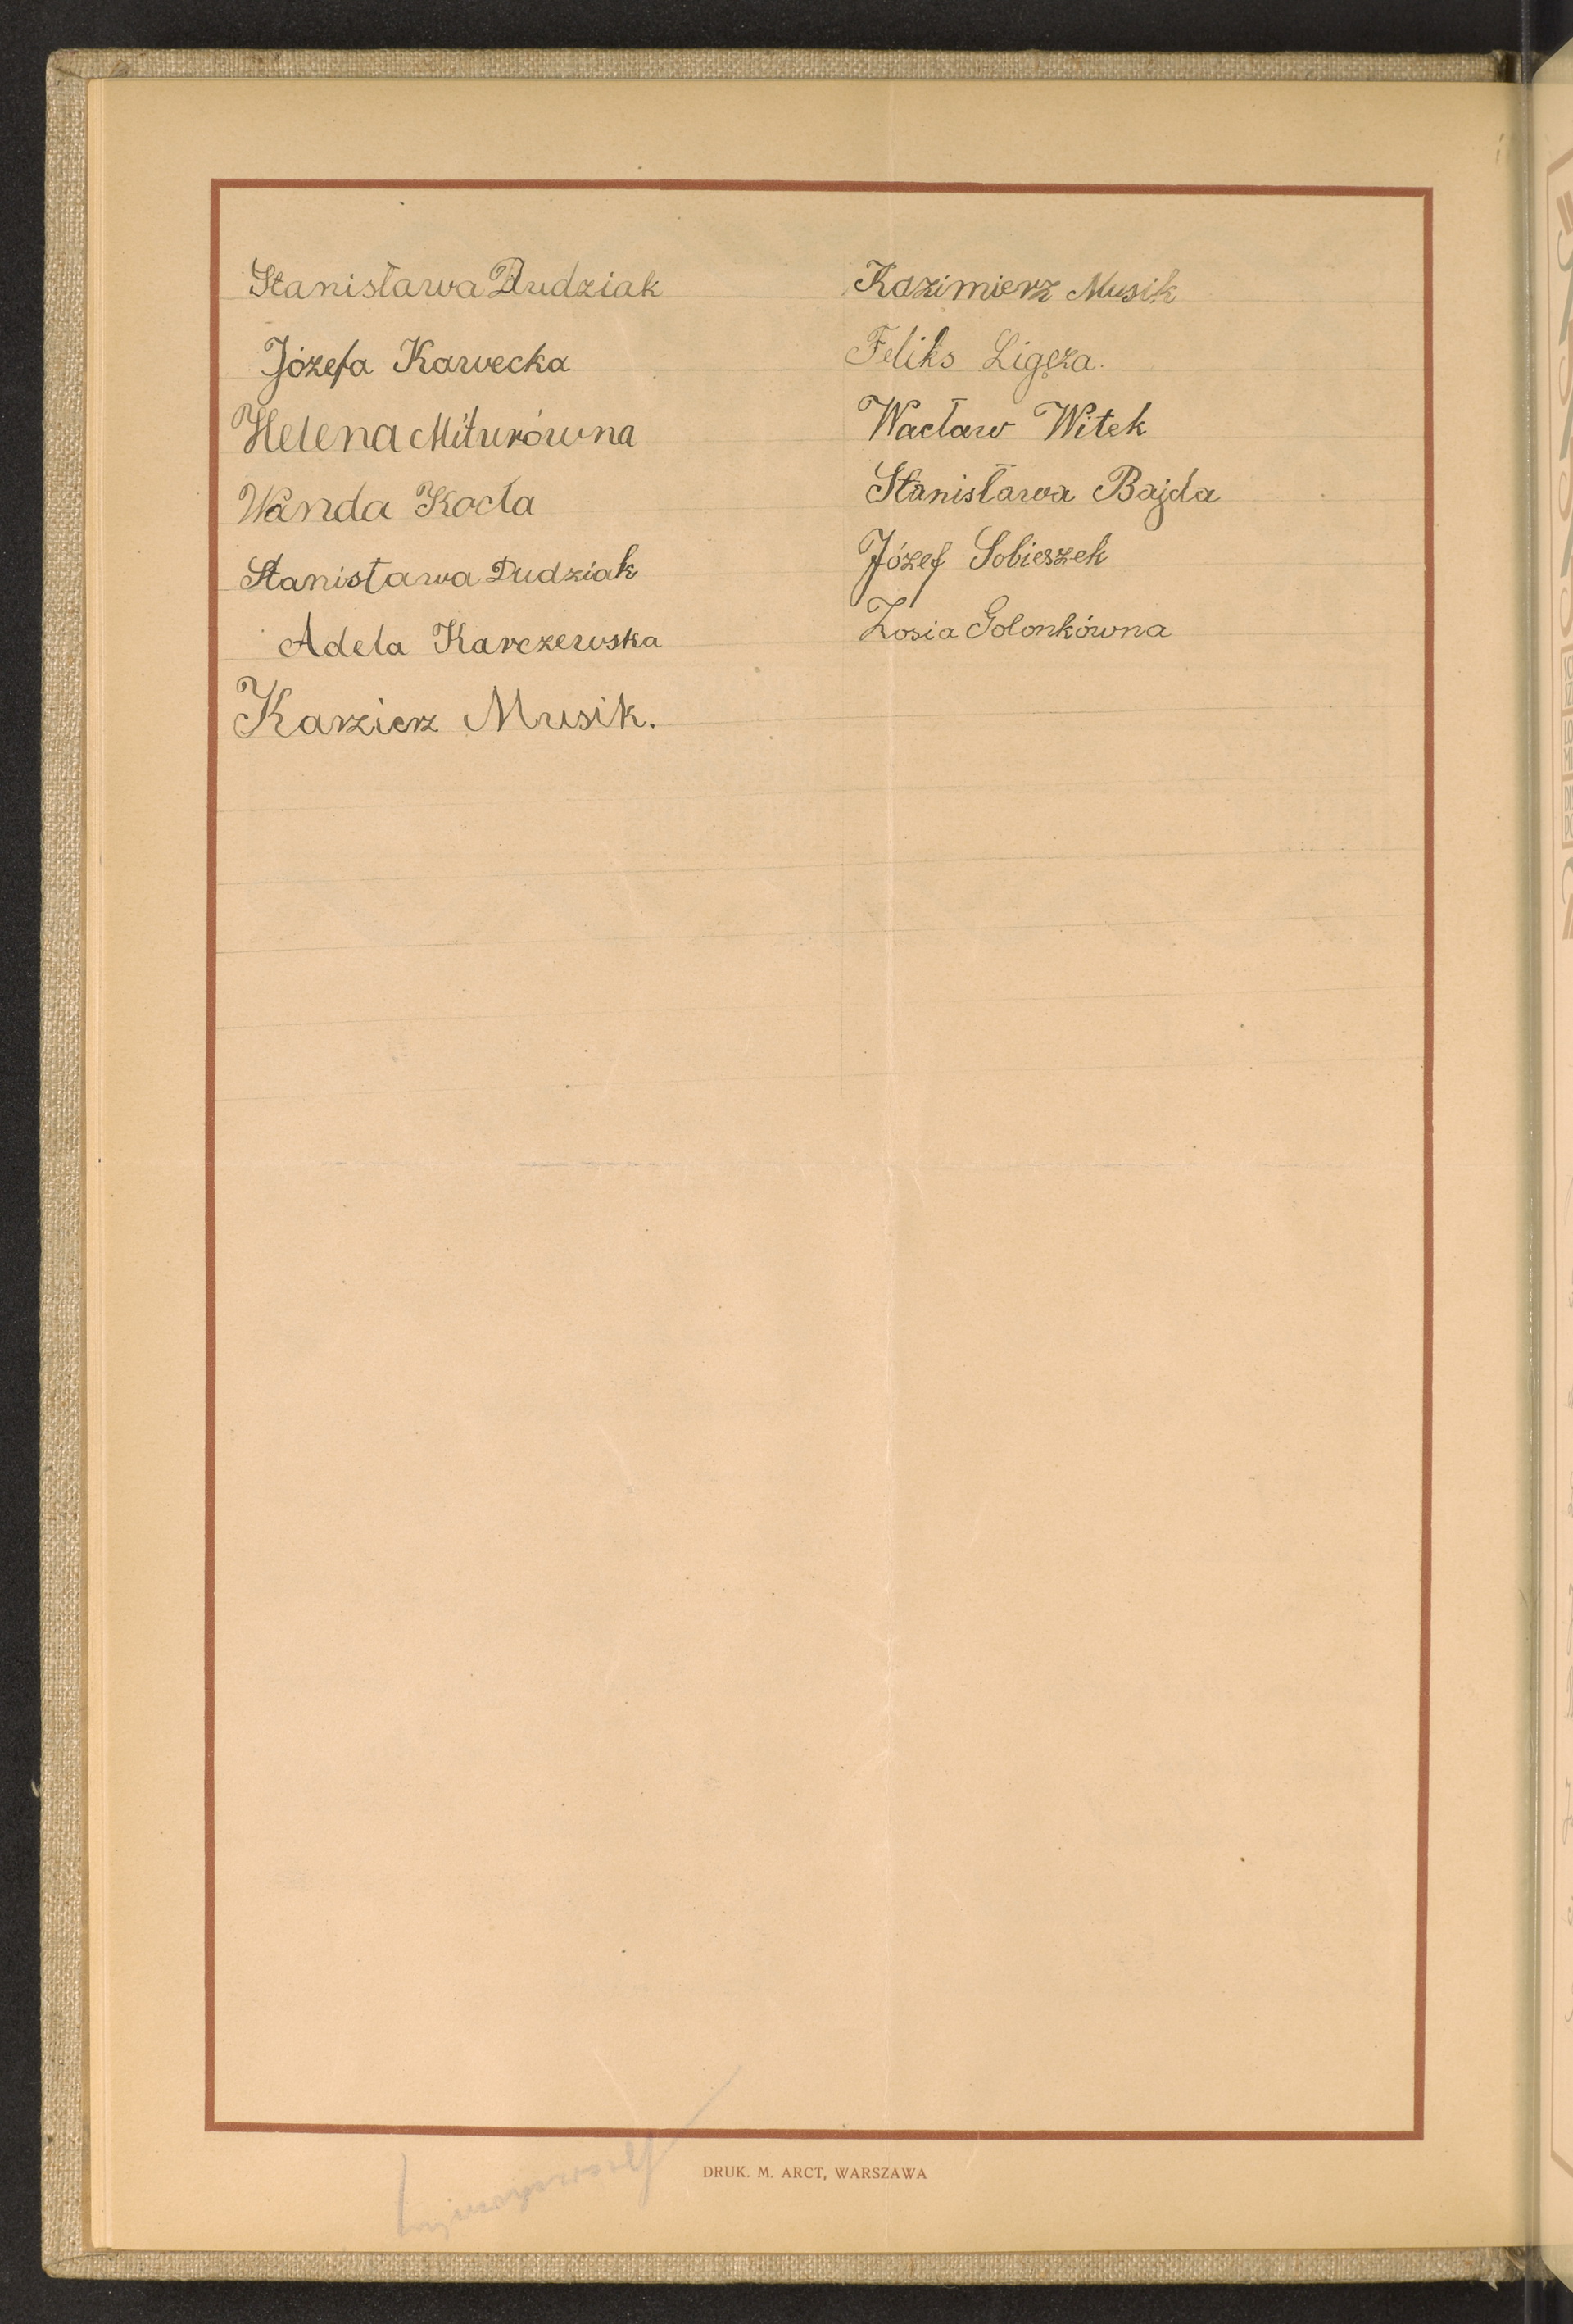 Stanisława Dudziak
Józefa Kawecka
Helena Miturówna
Wanda Kocła
Stanisława Dudziak
Adela Karczewska
Karzierz Musik.
Kazimierz Musik
Feliks Ligęza.
Wacław Witek
Stanisława Bajda
Józef Sobieszek
Zosia Golonkówna
DRUK. M. ARCT, WARSZAWA